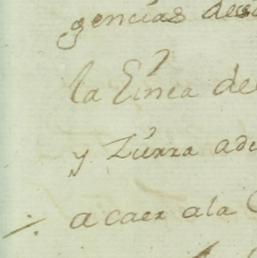 gencias des
la Linea de
y Zurra ade
a caer ala